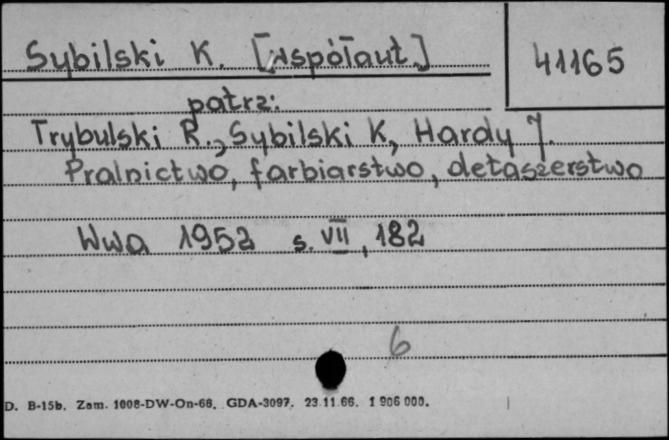 Sybilski K. [współaut.]
41165
patrz:
Trybulski R., Sybilski K, Hardy J.
Pralnictwo, farbiarstwo, detaszerstwo
Wwa 1952 s. VII, 182
6
D. B-15b. Zam. 1008-DW-On-66. GDA-3097. 23.11.66. 1 906 000.